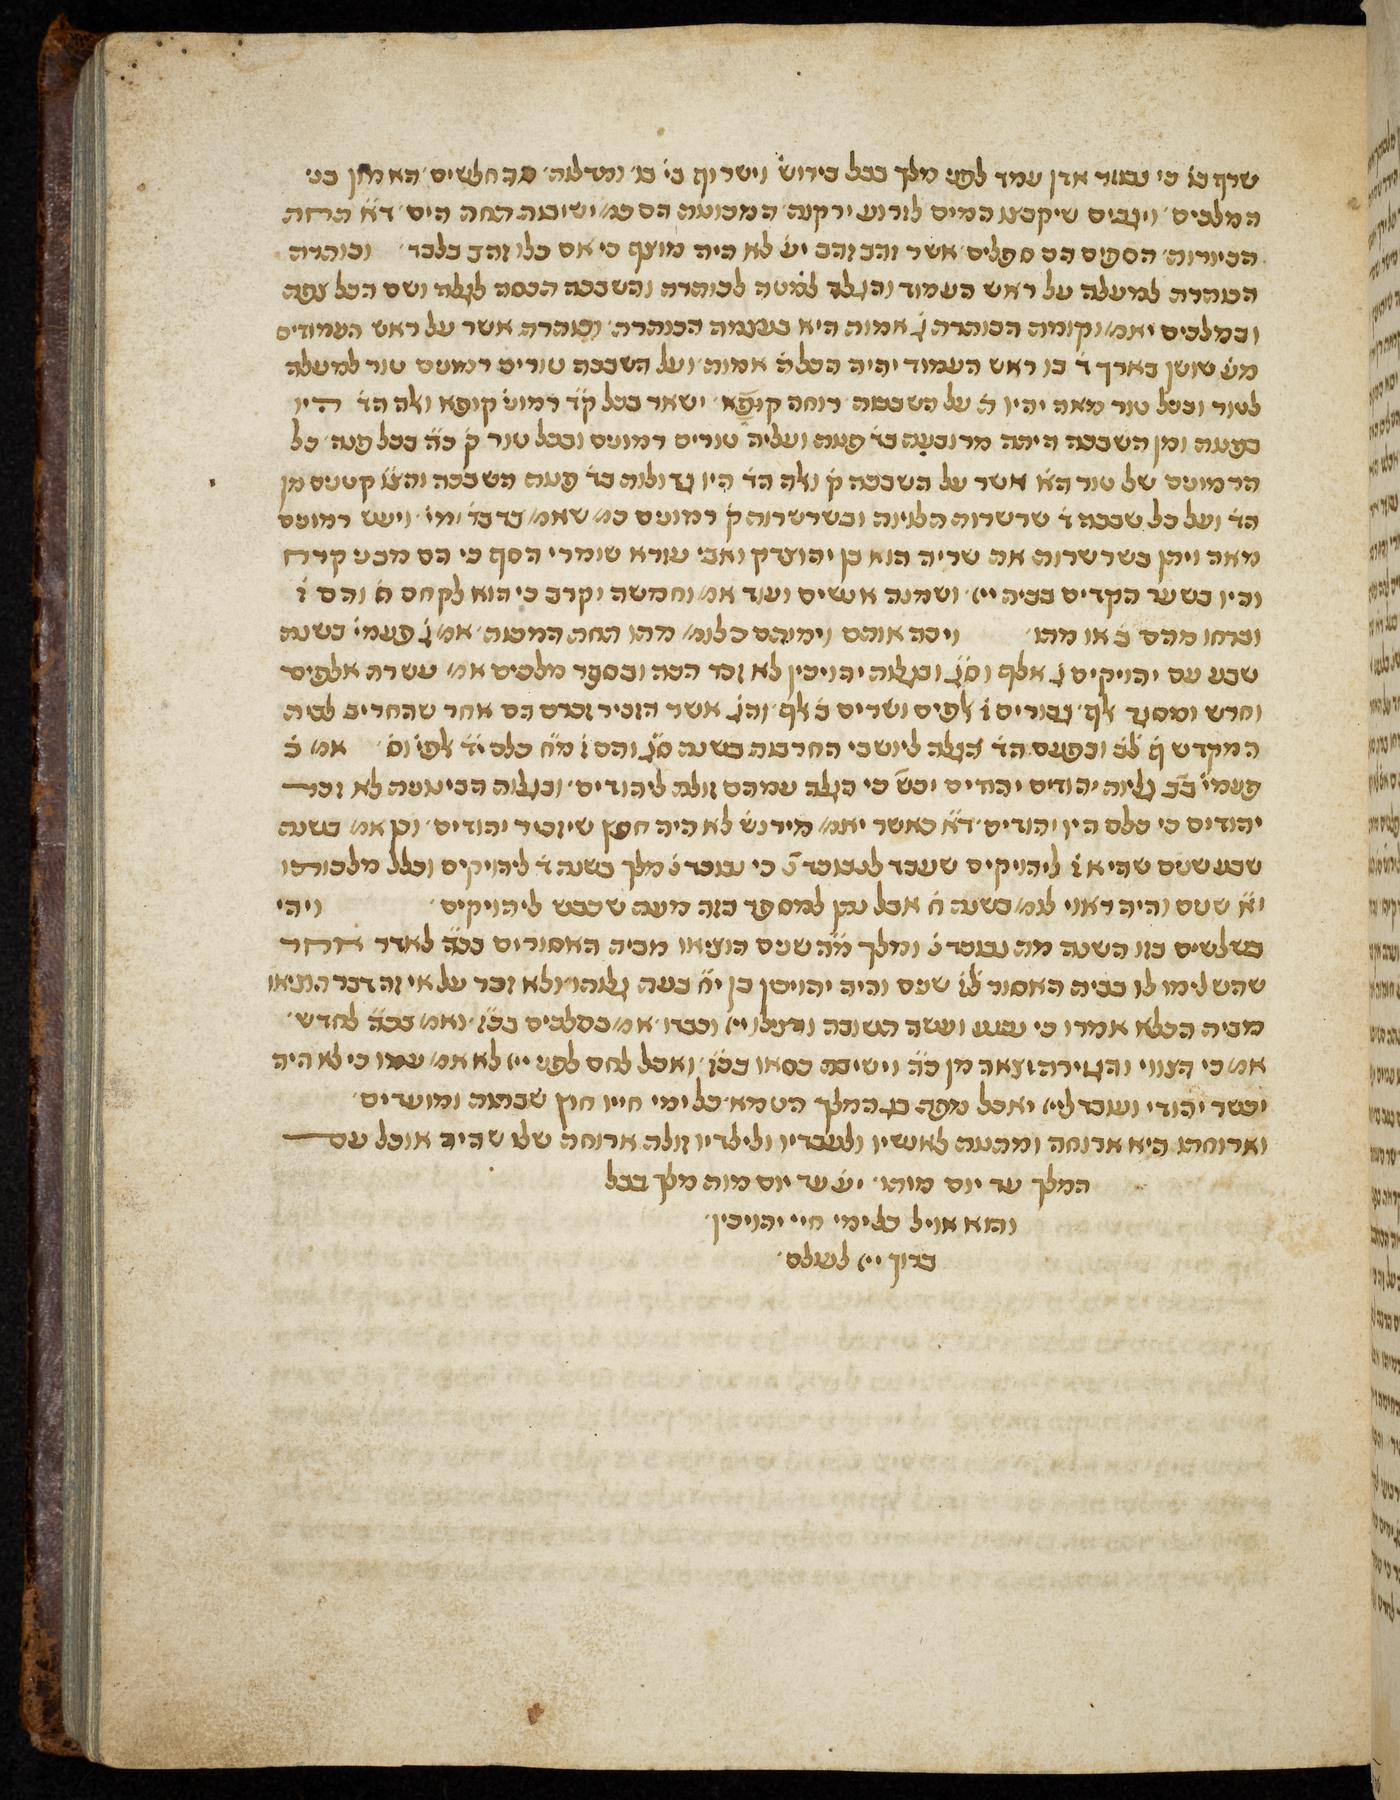 שרף בו כי נבוזר אדן עמד לפני מלך בבל פירוש וישרוף בו בו ומדלות החלשים האמון בני
המלכים ויגבים שיקבצו המים לזרוע ירקות המכונות הם כמו ישיבות תחת הים ד״א תחת
הכיורות הספים הם ספלים אשר זהב זהב יש לא היה מוצף כי אם כלו זהב בלבד וכותרת
הכותרת למעלה על ראש העמוד והגולה למטה לכותרת והשבכה תכסה לגלה ושם הכל צפה
ובמלכים יאמ׳ וקומת הכותרת ג אמות היא בעצמה הכותרת וכותרת אשר על ראש העמודים
מע׳ שושן באורך ד בו ראש העמוד יהיה הכל ה אמות ועל השבכה טורים רמונים טור למעלה
לטור ובכל טור מאה יהיו ה על השבכות רוחה קופא ישאר בכל ק״ד רמוני קופא ואלה הד היו
בפעה ומן השבכה היתה מרובעת בד פעות ועליה טורים רמונים ובכל טור ק כ״ה בכל פעה כל
הרמונים של טור הא אשר על השבכה ק ואלה הד היו גדולות בד פעות השבכה והצ״ו קטנים מן
הד ועל כל שבכה ד שרשרות תלויות ובשרשרות ק רמונים כמ׳ שאמ׳ בדברי ימי ויעש רמונים
מאה ויתן בשרשרות את שריה הוא בן יהוצדק ואבי עזרא שומרי הסף כי הם מבני קרח
והיו בשער הקדים בבית ייי ושמנה אנשים ועוד אמ׳ וחמשה וקרב כי הוא לקחם ה והם ז
וברחו מהם ב או מתו ויכה אותם וימיתם כלומ׳ מתו תחת המכות אמ׳ ג פעמי בשנת
שבע עם יהויקים ג אלף וכ״ג ובגלות יהויכין לא זכר הכה ובספר מלכים אמ׳ עשרת אלפים
וחרש ומסגר אלף גבורים ז אלפים ושרים ב אלף והג אשר הזכיר זכרם הם אחר שהחריב לבית
המקדש ק ל״ב ובפעם הד הגלה ליושבי החרבות בשנת כ״ג והם ז מ״ה כלם י״ד אלפי וס׳ אמ׳ ב
פעמי בב גלות יהודים יחידים יכש כי הגלה עמהם זולת ליהודים ובגלות הביאעת לא זכר
יהודים כי כלם היו יהודים ד״א כאשר יאמ׳ מירנש לא היה חפץ שיזכיר יהודים וכן אמ׳ בשנת
שבע שנים שהיא ז ליהויקים שעבד לנבוכד נ׳ כי נבוכד נ׳ מלך בשנת ד ליהויקים וכלל מלכותו
י״א שנים והיה ראוי לומ׳ בשנת ח אבל נתן למספר בזה מעת שכבש ליהויקים ויהי
בשלשים בזו השנה מת נבוכד נ׳ ומלך מ״ה שנים הוציאו מבית האסורים בכ״ה לאדר אחר
שהשלימו לו בבית האסור ל״ז שנים והיה יהויכין בן י״ח בעת גלותו ולא זכר על אי זה דבר הוציאו
מבית הכלא אמרו כי נכנע ועשה תשובה ורצהו ייי וכבדו אמ׳ במלכים בכ״ז ואמ׳ בכ״ה לחדש
אמ׳ כי הצווי והגזירה יצאה מן כ״ה וישיבת כסאו בכ״ז ואכל לחם לפני ייי לא אמ׳ עמו כי לא היה
יכשר יהודי ועובד לייי יאכל מפת בג המלך הטמא כל ימי חייו חוץ שבתות ומועדים
וארוחתו היא ארוחה ומתנה לאנשיו ולעבדיו ולילדיו זולת ארוחה שלו שהיה אוכל עם
המלך עד יום מותו יש עד יום מות מלך בבל
והוא אויל כל ימי חיי יהויכין
ברוך ייי לעולם